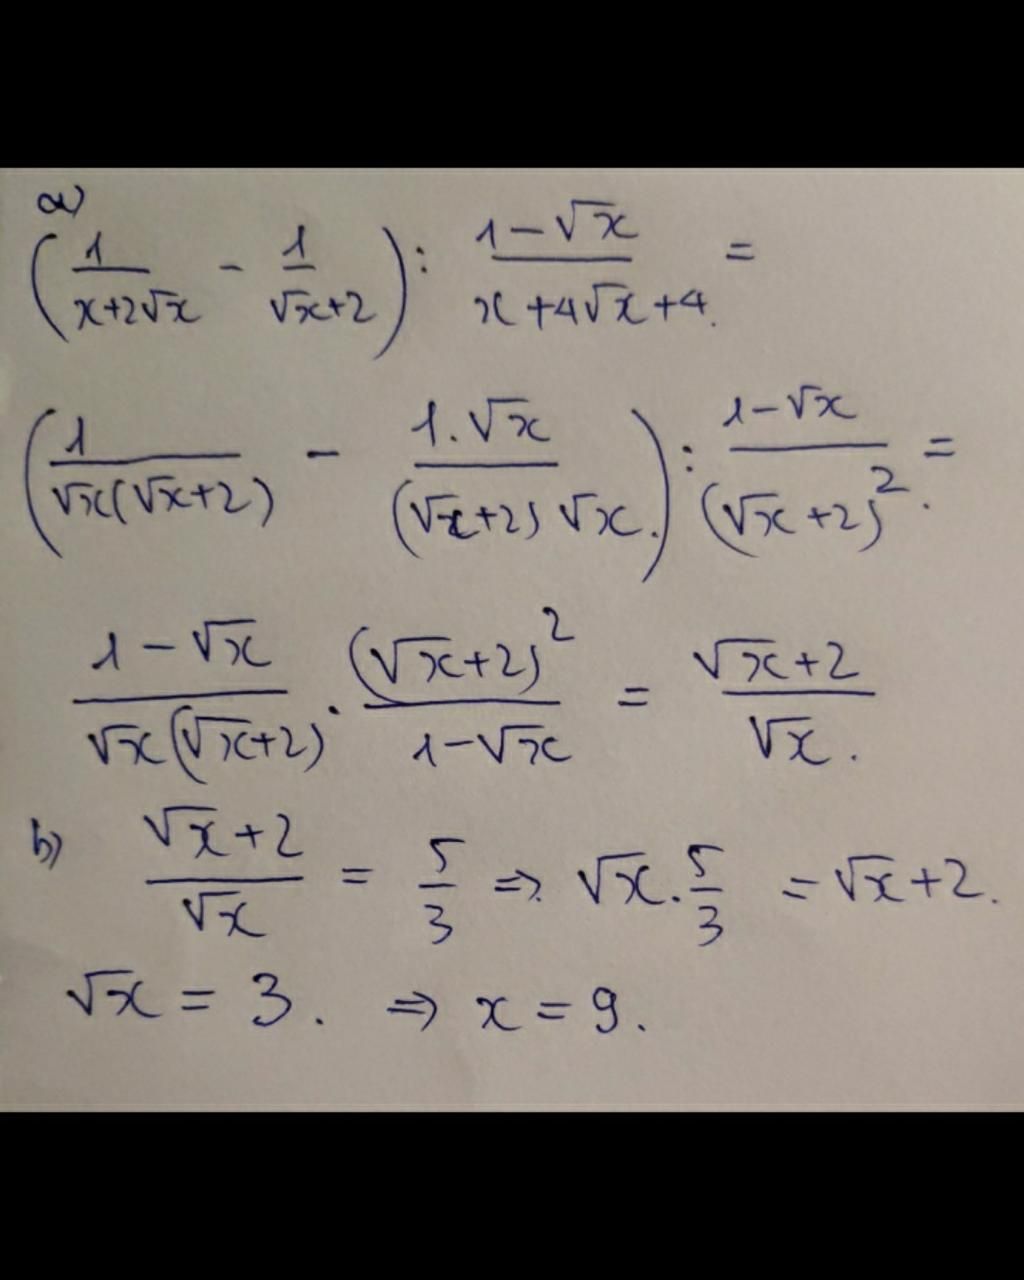 a)
(1/(x+2√x) - 1/(√x+2)) : (1-√x)/(x+4√x+4) =
(1/(√x(√x+2)) - (1.√x)/((√x+2)√x)) : (1-√x)/(√x+2)² =
(1-√x)/(√x(√x+2)) . (√x+2)²/(1-√x) = (√x+2)/√x.
b) (√x+2)/√x = 5/3 => √x . 5/3 = √x+2.
√x = 3. => x = 9.